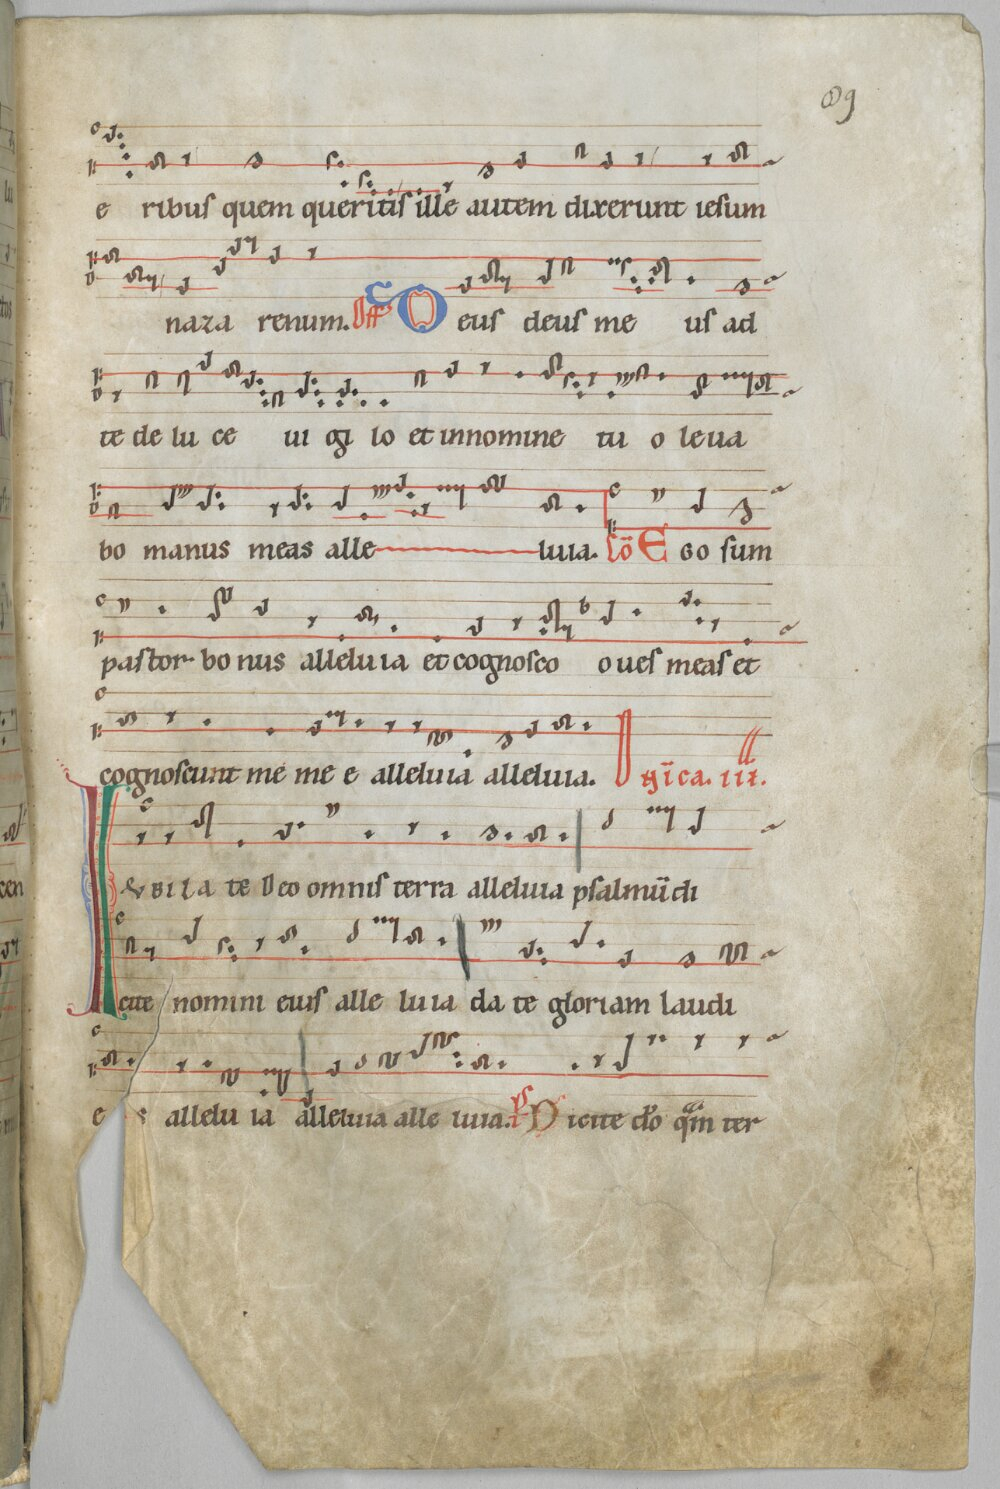 89
e ribus quem queritis ille autem dixerunt iesum
naza renum. Off Deus deus me us ad
te de lu ce ui gi lo et in nomine tu o leua
bo manus meas alle luia. Cō E go sum
pastor bonus alleluia et cognosco oues meas et
cognoscunt me me e alleluia alleluia. Dn̄ica. iii.
Iubilate Deo omnis terra alleluia psalmū di
cite nomini eius alle luia da te gloriam laudi
e s allelu ia alleluia alle luia. Ps Dicite dō qm̄ ter